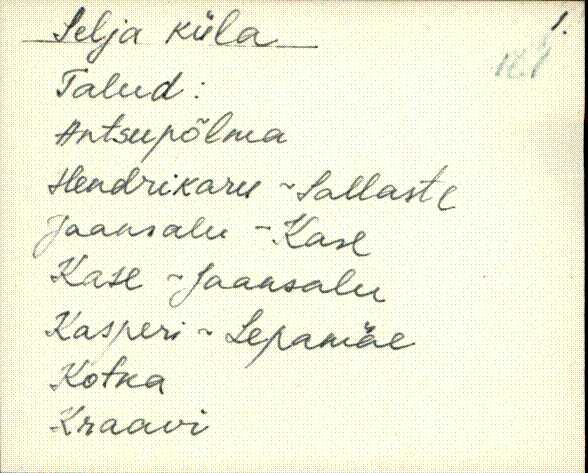 Selja küla
1.
Talud:
Antsupõlma
Hendrikaru ~ Sallaste
Jaansalu ~ Kase
Kase ~ Jaansalu
Kasperi ~ Lepamäe
Kotka
Kraavi